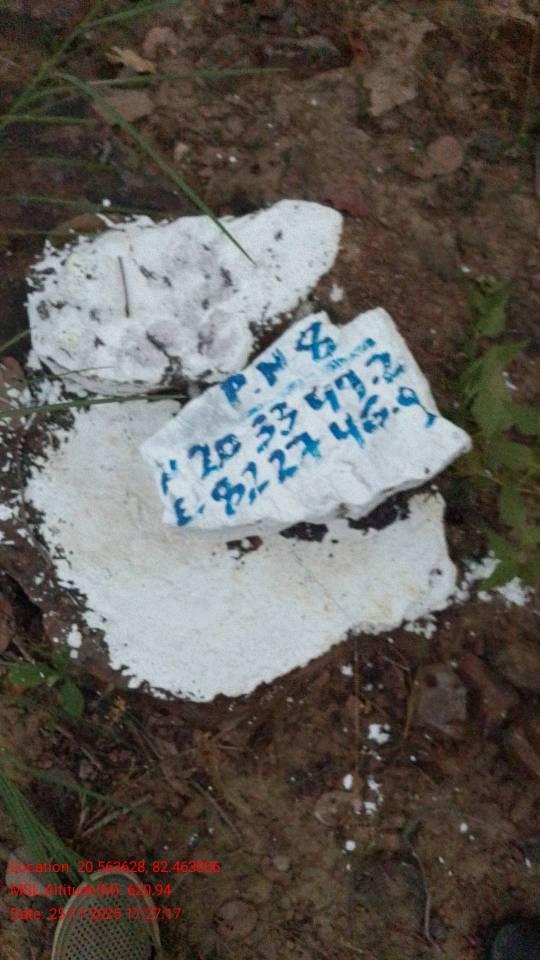 P.N 8
N 20 33 49.2
E. 82 27 46.9
Location: 20.563628, 82.463006
MSL Altitude(M): 620.94
Date: 25-11-2025 17:27:17